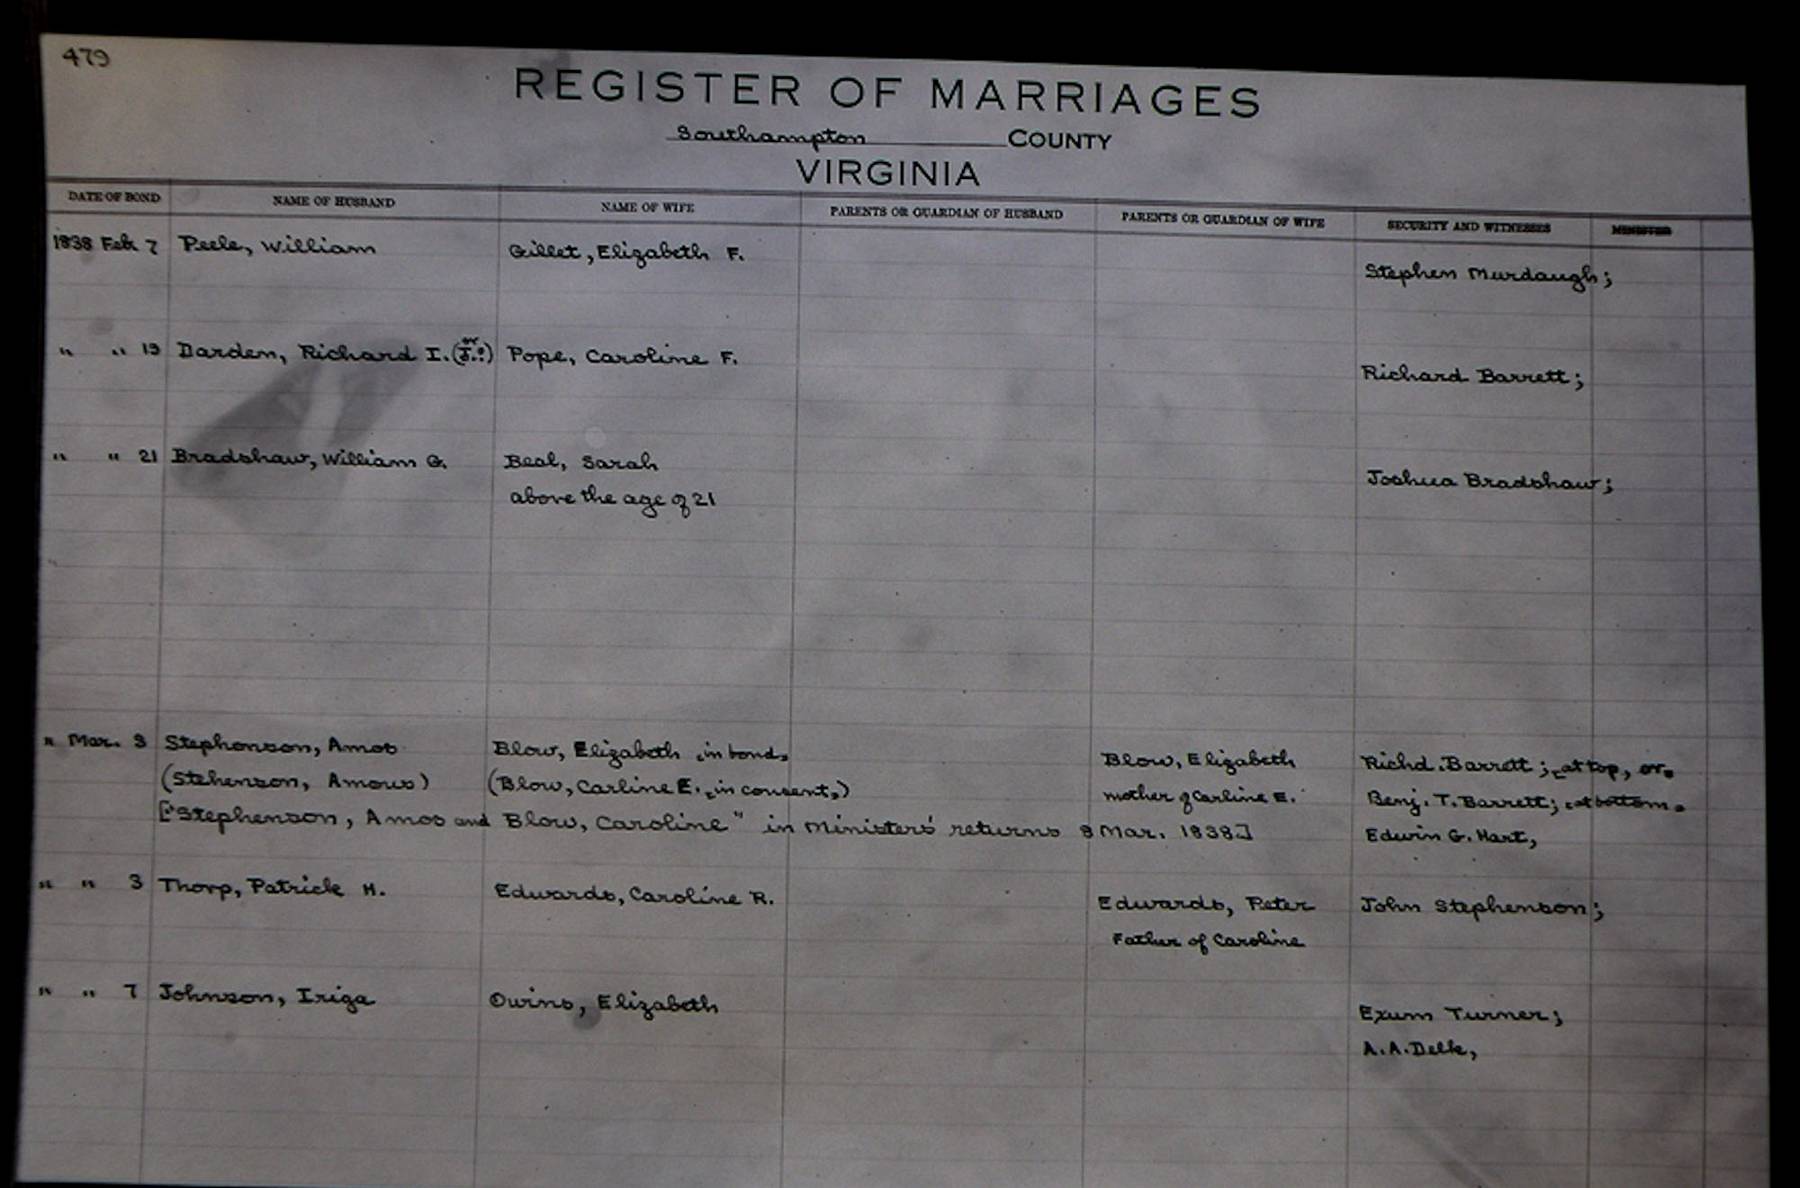 479
REGISTER OF MARRIAGES
Southampton COUNTY
VIRGINIA
DATE OF BOND NAME OF HUSBAND NAME OF WIFE PARENTS OR GUARDIAN OF HUSBAND PARENTS OR GUARDIAN OF WIFE SECURITY AND WITNESSES MINISTER
1838 Feb 7 Peele, William Gillet, Elizabeth F.
Stephen Murdaugh;
" " 19 Darden, Richard I. (or J.?) Pope, Caroline F.
Richard Barrett;
" " 21 Bradshaw, William G. Beal, Sarah
Joshua Bradshaw;
above the age of 21
" Mar. 3 Stephenson, Amos Blow, Elizabeth , in bond, Blow, Elizabeth Richd. Barrett; , at top, or,
(Stehenson, Amous) (Blow, Carline E. , in consent,) mother of Carline E. Benj. T. Barrett; , at bottom,
["Stephenson, Amos and Blow, Caroline" in Ministers' returns 8 Mar. 1838] Edwin G. Hart,
" " 3 Thorp, Patrick H. Edwards, Caroline R. Edwards, Peter John Stephenson;
Father of Caroline
" " 7 Johnson, Iriga Owins, Elizabeth
Exum Turner;
A. A. Delk,